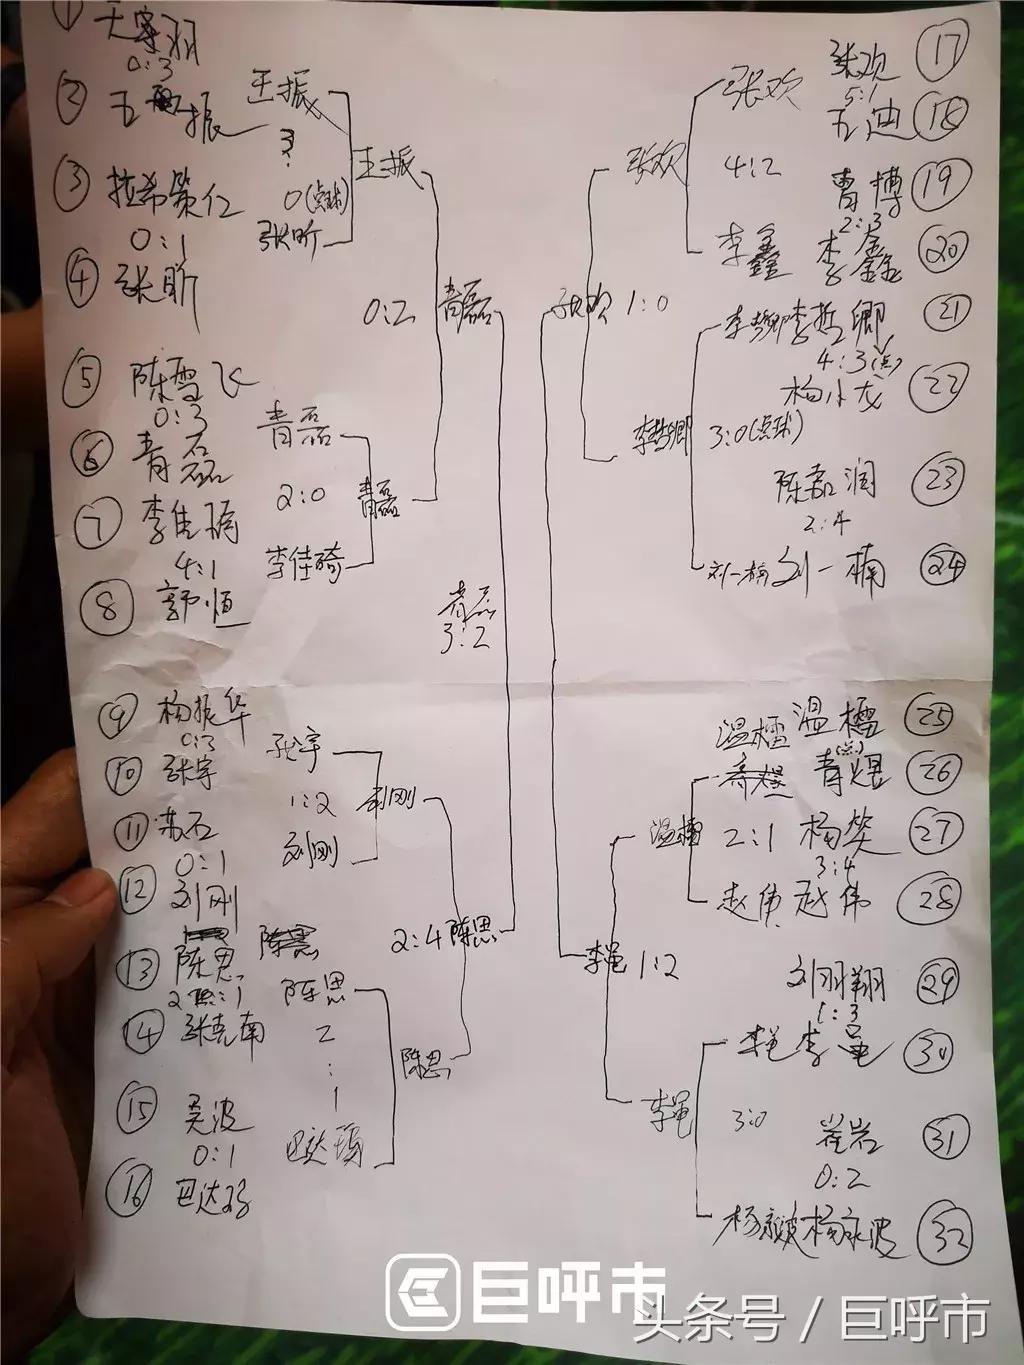 ①
0:3
② 王振
王振
③ 拉希策仁
3:0(点球)
王振
0:1
④ 张昕
张昕
0:2 青磊
⑤ 陈雪飞
0:3
⑥ 青磊
青磊
2:0 青磊
⑦ 李佳琦
李佳琦
4:1
⑧ 郭恒
青磊
3:2
⑨ 杨振华
0:3
⑩ 张宇
张宇
1:2 刘刚
⑪ 苏石
0:1
⑫ 刘刚
刘刚
2:4 陈思
⑬ 陈思
陈思
陈思
2:1
⑭ 张克南
2:1
陈思
⑮ 吴波
0:1
⑯ 巴达玛
张欢 ⑰
张欢
5:1
王迪 ⑱
张欢 4:2
曹博 ⑲
2:3
李鑫 李鑫 ⑳
张欢 1:0
李哲卿 李哲卿 ㉑
4:3(点)
杨小龙 ㉒
李哲卿 3:0(点球)
陈嘉润 ㉓
2:4
刘一楠 刘一楠 ㉔
温櫺 温櫺 ㉕
(点)
青煜 ㉖
温櫺 2:1 杨笑 ㉗
3:4
赵伟 赵伟 ㉘
李黾 1:2
刘羽翔 ㉙
1:3
㉚
3:0
崔岩 ㉛
0:2
杨永波 杨永波 ㉜
巨呼市
头条号 / 巨呼市